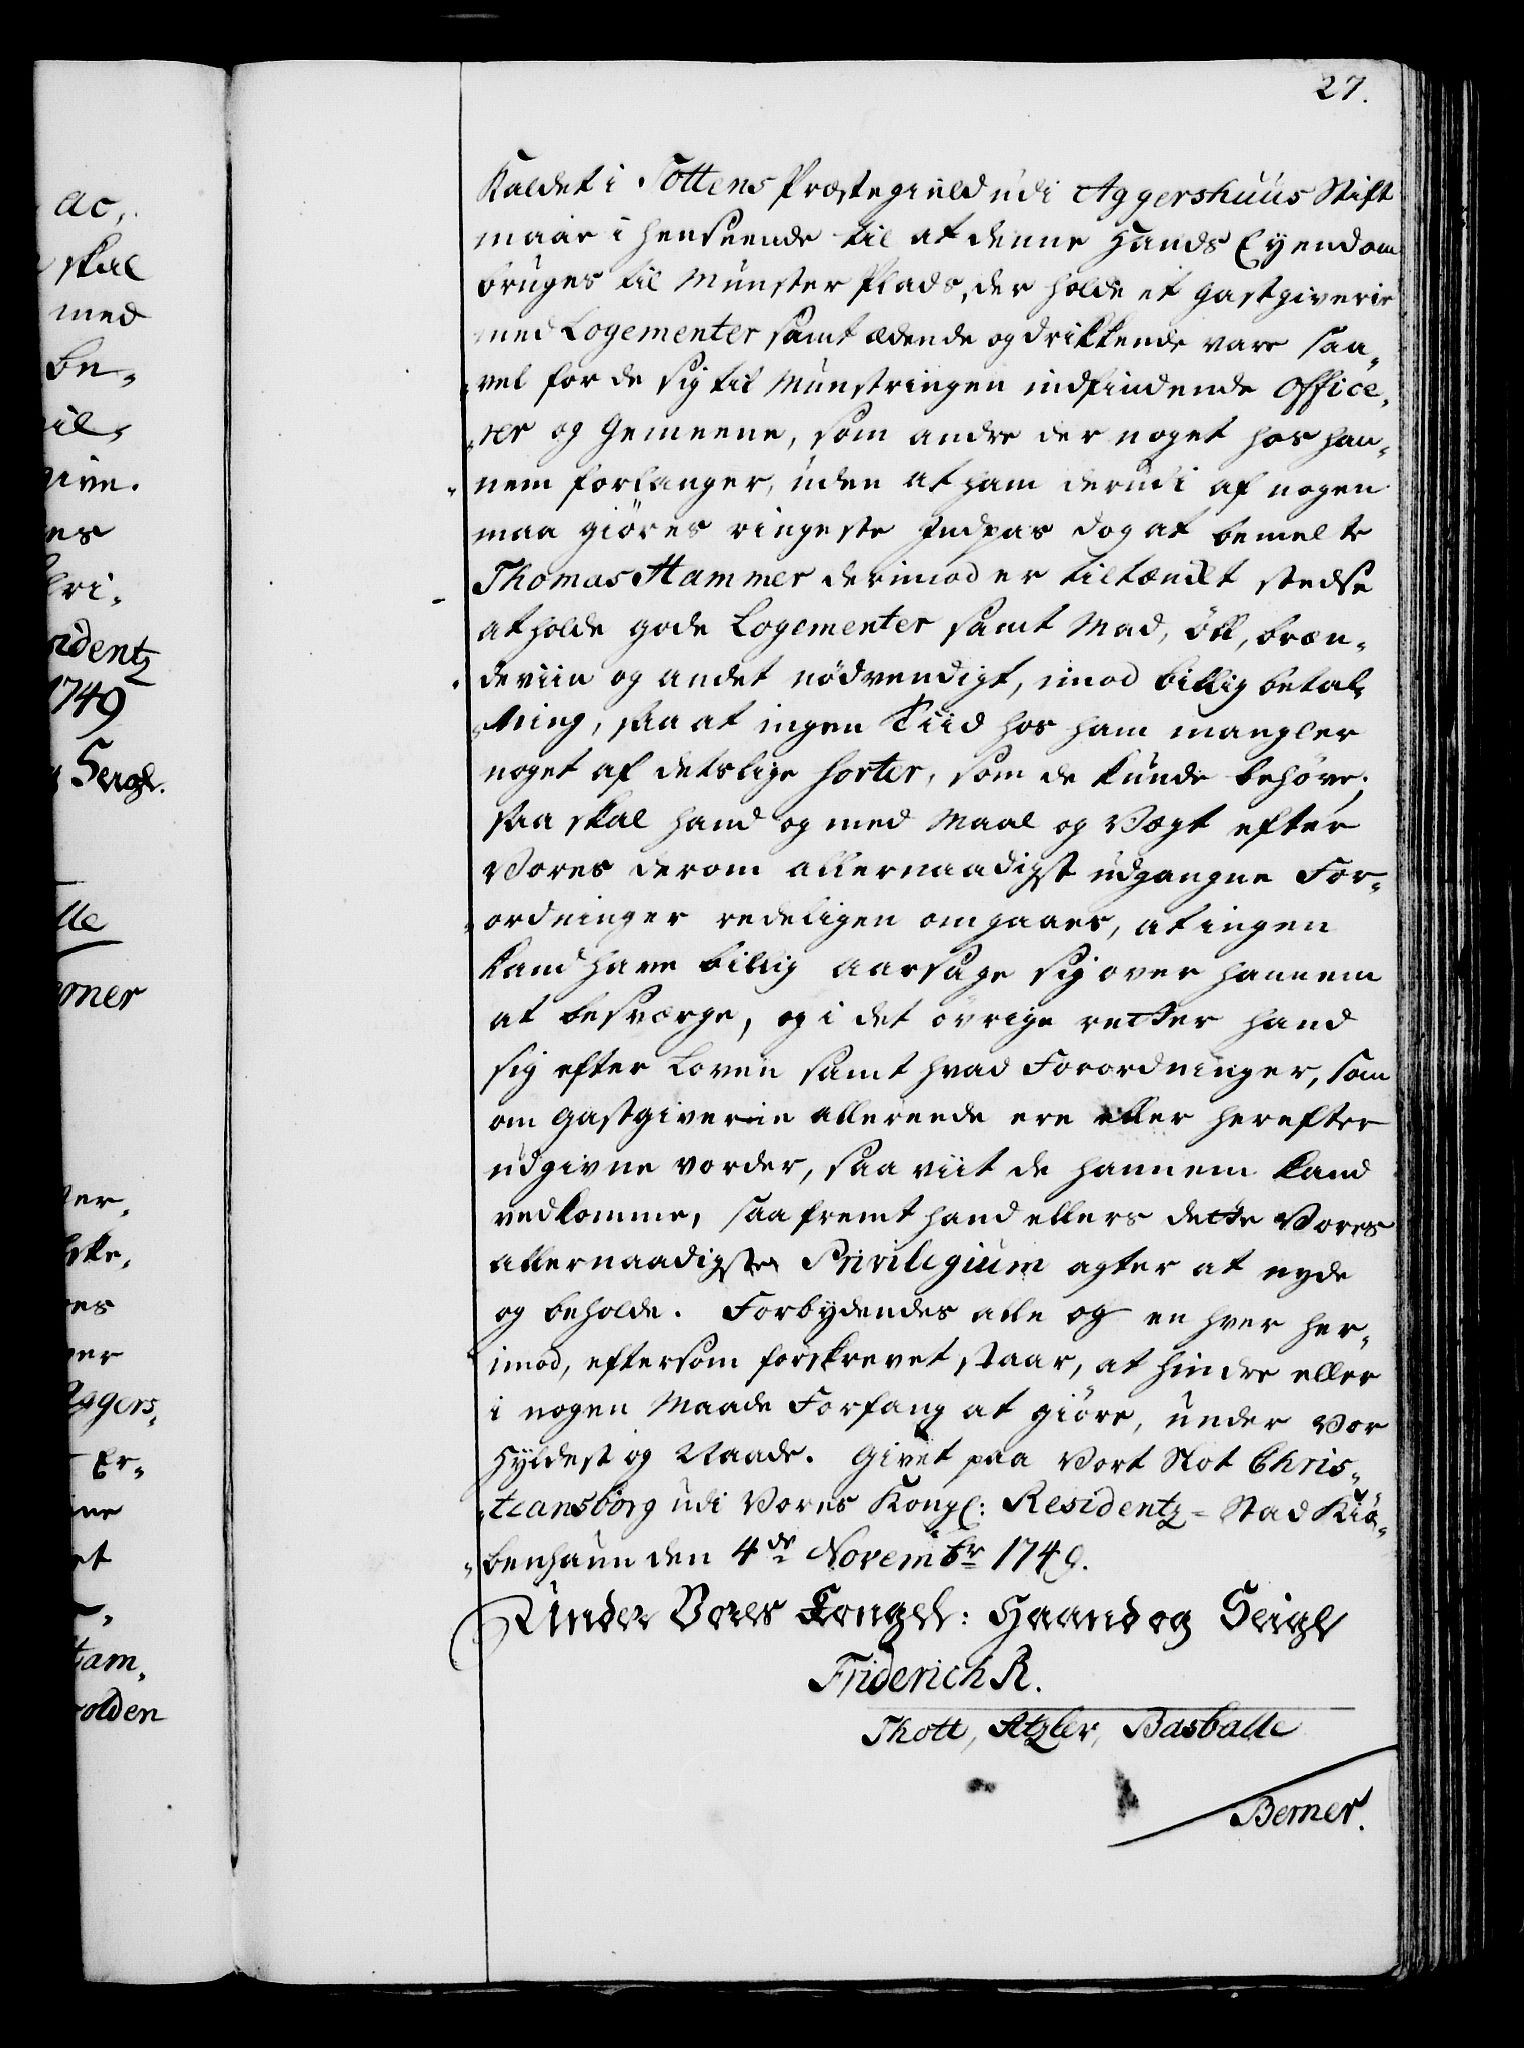 27.
Kaldet i Tottens Præstegield udi Aggershuus Stift
maae i henseende til at denne Hands Eyendom
bruges til Mynster Plads, der holde et Gastgiverie
med Logementer samt ædende og drikkende vare saa„
„vel for de sig til Mynstringen indfindende Office„
„rer og Gemeene, som andre der noget hos han„
„nem forlanger, uden at ham derudi af nogen
maa giøres ringeste Indpas dog at bemelte
Thomas Hammer derimod er tiltænkt stedse
at holde gode Logementer samt Mad, öll, bræn„
„deviin og andet nödvendigt, imod billig betal„
„ning, saa at ingen Tiid hos ham mangler
noget af detslige sorter, som de kunde behöve;
saa skal hand og med Maal og Vægt efter
Vores derom allernaadigst udgangne For„
„ordninger redeligen omgaaes, at ingen
kand have billig aarsage sig over hannem
at besværge, og i det övrige retter hand
sig efter Loven samt hvad Forordninger, som
om Gastgiverie allereede ere eller herefter
udgivne vorder, saa viit de hannem kand
vedkomme, saafremt hand ellers dette Vores
allernaadigste Privilegium agter at nyde
og beholde. Forbydendes alle og en hver her„
„imod, eftersom forskrevet staar, at hindre eller
i nogen Maade Forfang at giöre, under Vor
Hyldest og Naade. Givet paa Vort Slot Chris„
„tiansborg udi Vores Kongl: Residentz-Stad Kiö„
„benhaun den 4de Novembr 1749.
Under Vores Kongel: Haand og Seigl
Friderich R.
Thott, Atzler, Basballe
Berner.
ac.
skal
med
be„
give.
1749
Seigl.